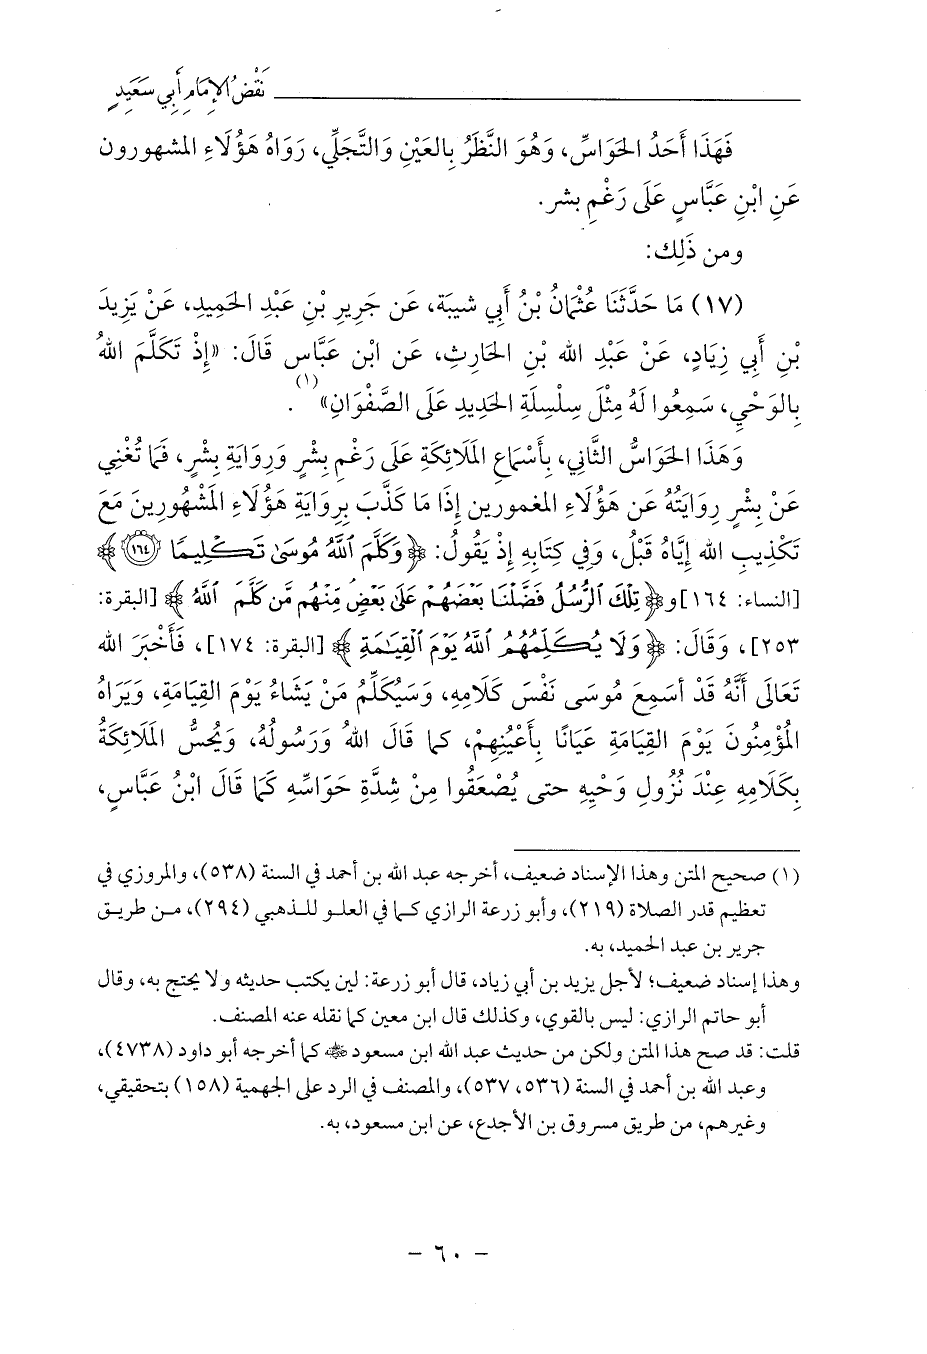 نَقْضُ الإِمَامِ أَبِي سَعِيدٍ
فَهَذَا أَحَدُ الحَوَاسِّ، وَهُوَ النَّظَرُ بِالعَيْنِ وَالتَّجَلِّي، رَوَاهُ هَؤُلَاءِ المشهورون
عَنِ ابْنِ عَبَّاسٍ عَلَى رَغْمِ بشر.
ومن ذَلِكَ:
(١٧) مَا حَدَّثَنَا عُثْمَانُ بْنُ أَبِي شيبَة، عَن جَرِيرِ بْنِ عَبْدِ الحَمِيدِ، عَنْ يَزِيدَ
بْنِ أَبِي زِيَادٍ، عَنْ عَبْدِ الله بْنِ الحَارِثِ، عَن ابْنِ عَبَّاس قَالَ: «إِذْ تَكَلَّمَ اللهُ
بِالوَحْيِ، سَمِعُوا لَهُ مِثْلَ سِلْسِلَةِ الحَدِيدِ عَلَى الصَّفْوَانِ»(١).
وَهَذَا الحَوَاسُّ الثَّانِي، بِأَسْمَاعِ المَلَائِكَةِ عَلَى رَغْمِ بِشْرٍ وَرِوَايَةِ بِشْرٍ، فَمَا تُغْنِي
عَنْ بِشْرٍ رِوَايَتُهُ عَن هَؤُلَاءِ المغمورين إِذَا مَا كَذَّبَ بِرِوَايَةِ هَؤُلَاءِ المَشْهُورِينَ مَعَ
تَكْذِيبِ الله إِيَّاهُ قَبْلُ، وَفِي كِتَابِهِ إِذْ يَقُولُ: ﴿وَكَلَّمَ ٱللَّهُ مُوسَىٰ تَكْلِيمًا ١٦٤﴾
[النساء: ١٦٤] و﴿تِلْكَ ٱلرُّسُلُ فَضَّلْنَا بَعْضَهُمْ عَلَىٰ بَعْضٍ مِّنْهُم مَّن كَلَّمَ ٱللَّهُ﴾ [البقرة:
٢٥٣]، وَقَالَ: ﴿وَلَا يُكَلِّمُهُمُ ٱللَّهُ يَوْمَ ٱلْقِيَٰمَةِ﴾ [البقرة: ١٧٤]، فَأَخْبَرَ الله
تَعَالَى أَنَّهُ قَدْ أسَمِعَ مُوسَى نَفْسَ كَلَامِهِ، وَسَيُكَلِّمُ مَنْ يَشَاءُ يَوْمَ القِيَامَةِ، وَيَرَاهُ
المُؤْمِنُونَ يَوْمَ القِيَامَةِ عَيَانًا بِأَعْيُنِهِمْ، كما قَالَ اللهُ وَرَسُولُهُ، وَيُحِسُّ المَلَائِكَةُ
بِكَلَامِهِ عِنْدَ نُزُولِ وَحْيِهِ حتى يُصْعَقُوا مِنْ شِدَّةِ حَوَاسِّهِ كَمَا قَالَ ابْنُ عَبَّاسٍ،
(١) صحيح المتن وهذا الإسناد ضعيف، أخرجه عبد الله بن أحمد في السنة (٥٣٨)، والمروزي في
تعظيم قدر الصلاة (٢١٩)، وأبو زرعة الرازي كما في العلو للذهبي (٢٩٤)، من طريق
جرير بن عبد الحميد، به.
وهذا إسناد ضعيف؛ لأجل يزيد بن أبي زياد، قال أبو زرعة: لين يكتب حديثه ولا يحتج به، وقال
أبو حاتم الرازي: ليس بالقوي، وكذلك قال ابن معين كما نقله عنه المصنف.
قلت: قد صح هذا المتن ولكن من حديث عبد الله ابن مسعود ﵁ كما أخرجه أبو داود (٤٧٣٨)،
وعبد الله بن أحمد في السنة (٥٣٦، ٥٣٧)، والمصنف في الرد على الجهمية (١٥٨) بتحقيقي،
وغيرهم، من طريق مسروق بن الأجدع، عن ابن مسعود، به.
- ٦٠ -